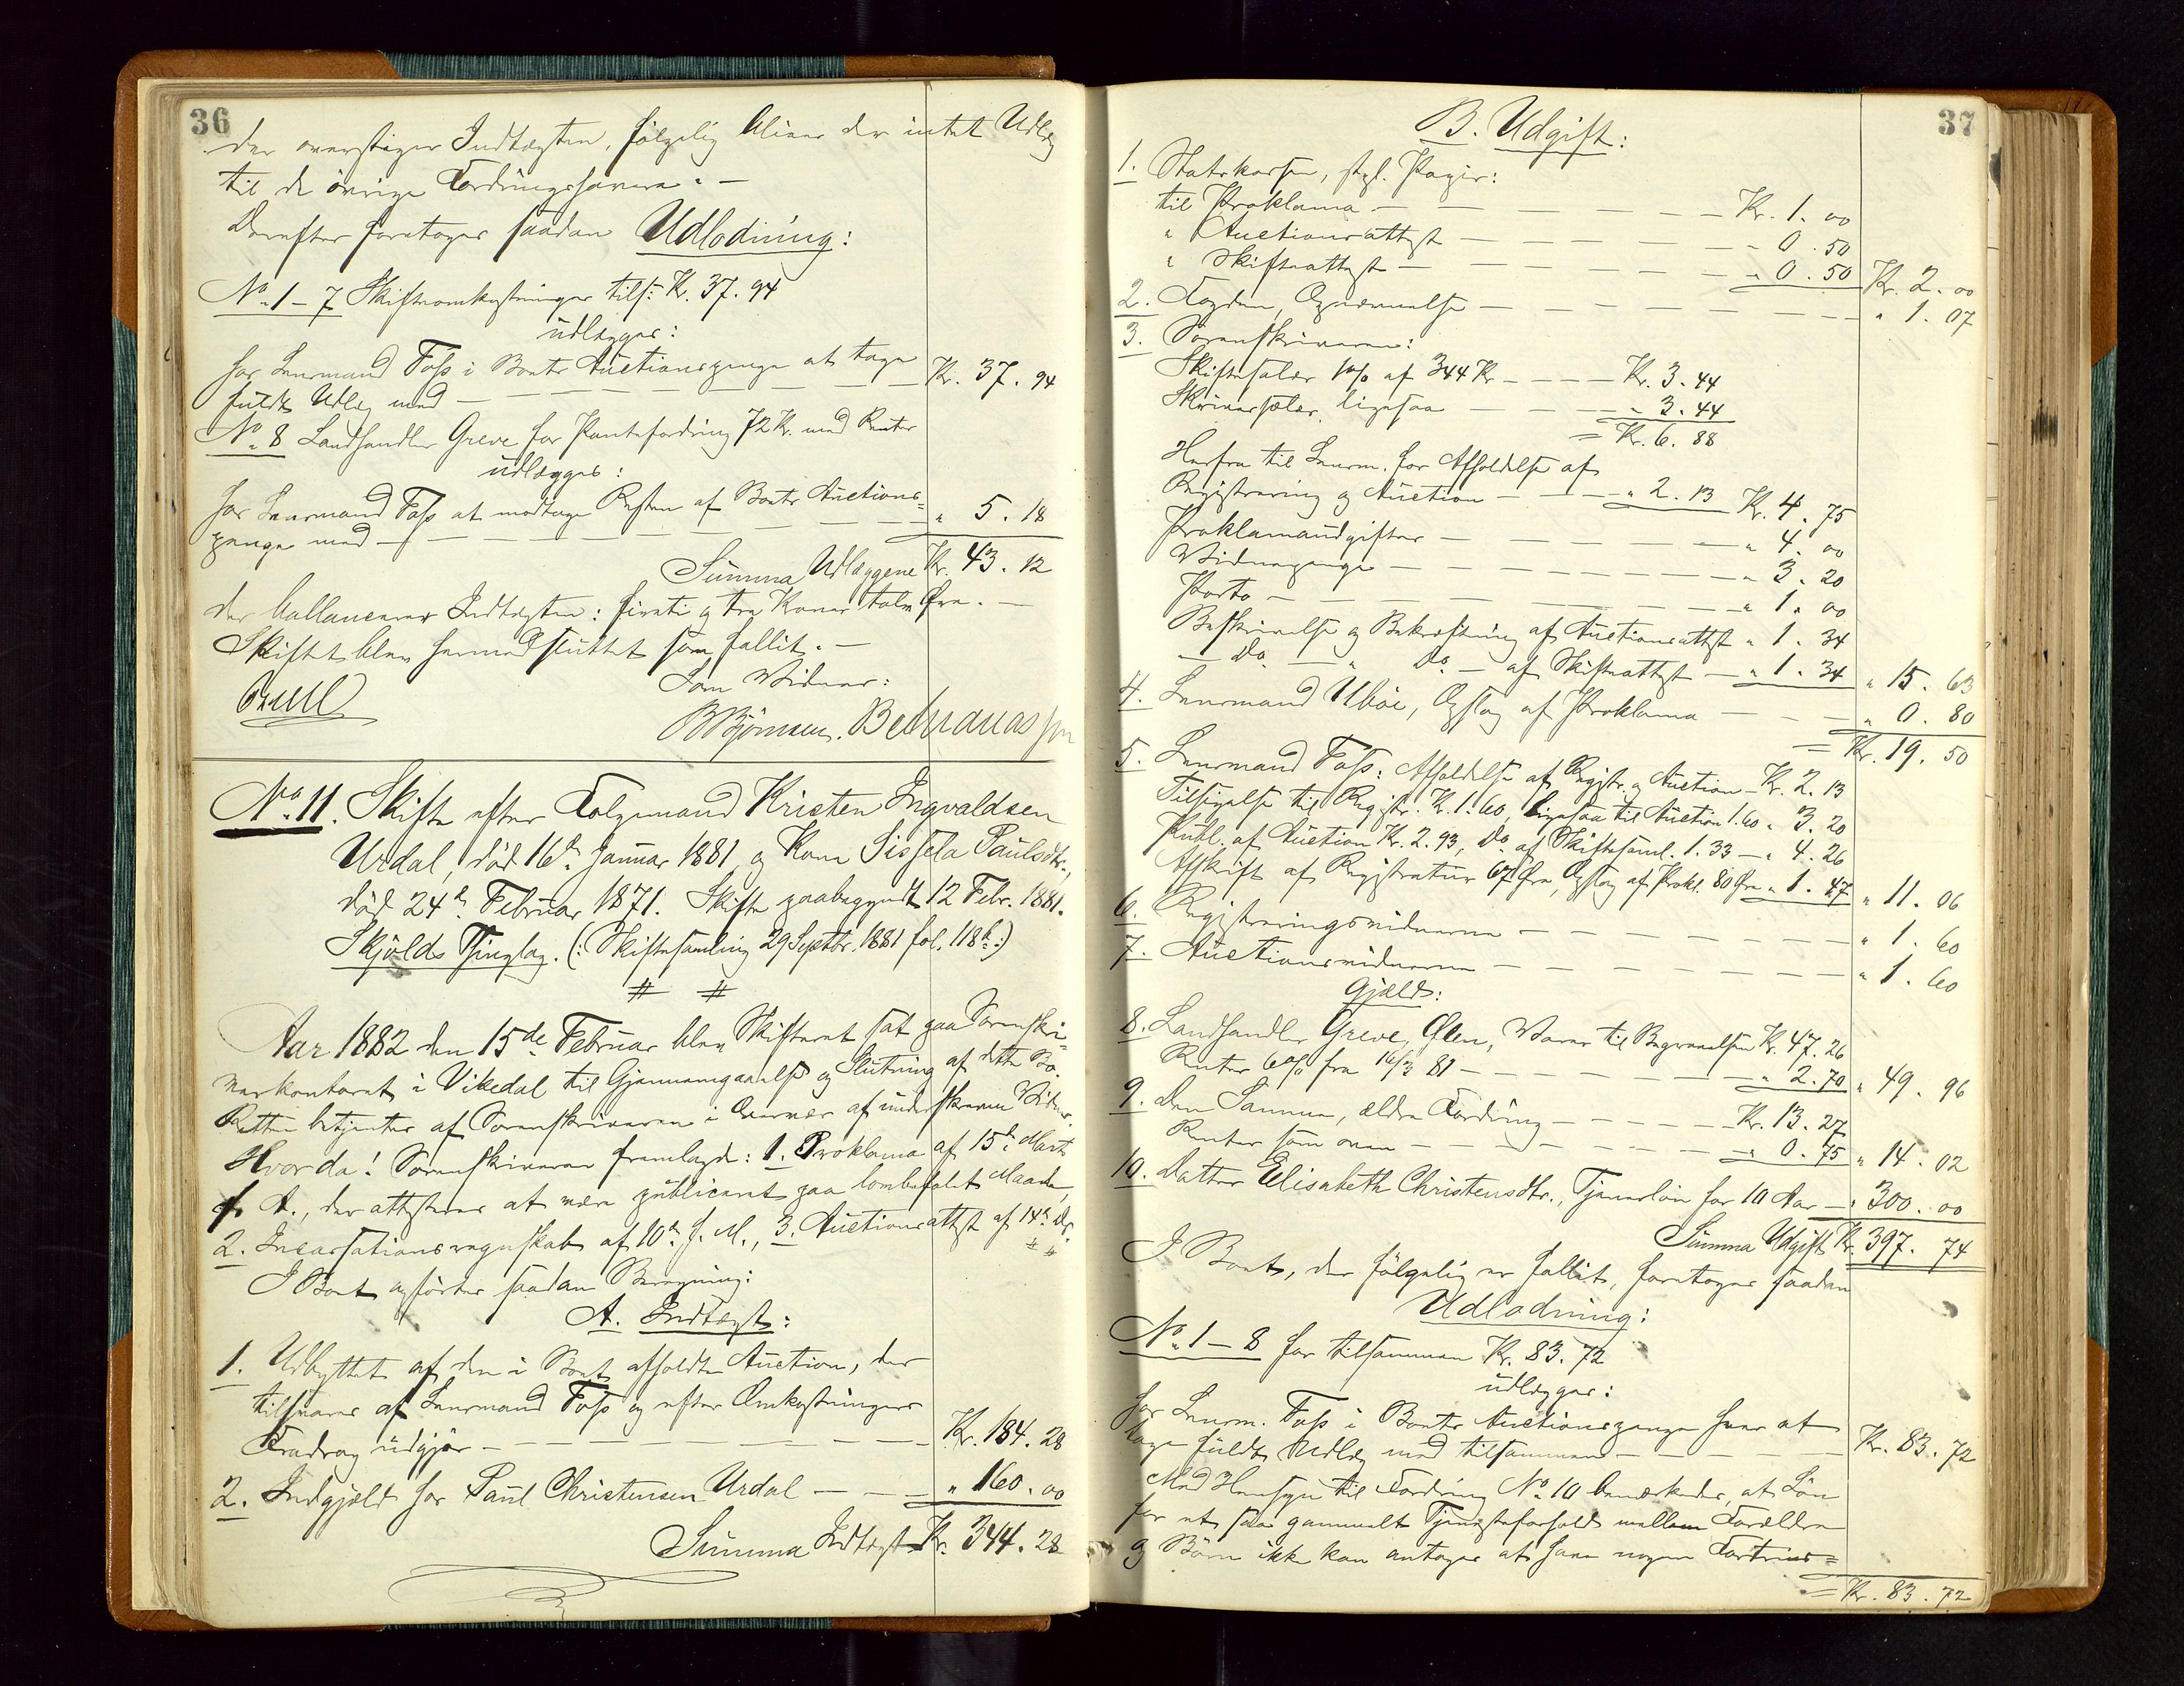 36
der overstiger Indtægten, følgelig bliver der intet Udlæg
til de øvrige Fordringshavere. —
Derefter foretoges saadan Udlodning:
No. 1 – 7 Skifteomkostninger tils: Kr. 37. 94
udlægges:
hos Lensmand Foss i Boets Auctionspenge at tage
fuldt Udlæg med — — — — Kr. 37. 94
No. 8 Landhandler Greve for Pantefordring 72 Kr. med Renter
udlægges:
hos Lensmand Foss at modtage Resten af Boets Auctions=
penge med — — — — " 5. 18
Summa Udlæggene Kr. 43. 12
der ballancerer Indtægten: firti og tre Kroner tolv Øre. —
Skiftet blev hermed sluttet som fallit. —
Som Vidner:
B Bjørnsen.
No. 11. Skifte efter Folgemand Kristen Ingvaldsen
Urdal, død 16de Januar 1881, og Kone Sissela Paulsdtr.,
død 24de Februar 1871. Skifte paabegyndt 12 Febr. 1881.
Skjolds Thinglag. (: Skiftesamling 29 Septbr. 1881 fol. 118b :)
# #
Aar 1882 den 15de Februar blev Skifteret sat paa Sorenskri=
verkontoret i Vikedal til Gjennemgaaelse og Slutning af dette Bo.
Retten betjentes af Sorenskriveren i Overvær af underskrevne Vidner.
Hvorda! Sorenskriveren fremlagde: 1. Proklama af 15de Marts
f. A., der attesteres at være publiceret paa lovbefalet Maade,
2. Incassationsregnskab af 10de f. M., 3. Auctionsattest af 14de Ds.
# #
I Boet opførtes saadan Beregning:
A. Indtægt:
1. Udbyttet af den i Boet afholdte Auction, der
tilsvares af Lensmand Foss og efter Omkostningers
Fradrag udgjør — — — — Kr. 184. 28
2. Indgjæld hos Paul Christensen Urdal — — — " 160. 00
Summa Indtægt Kr. 344. 28
37
B. Udgift:
1. Statskassen, stpl. Papir:
til Proklama — — — — Kr. 1. 00
" Auctionsattest — — — — " 0. 50
" Skifteattest — — — — " 0. 50 Kr. 2. 00
2. Fogden, Opnævnelse — — — — " 1. 07
3. Sorenskriveren:
Skiftesalær 1% af 344 Kr. — — — Kr. 3. 44
Skriversalær, ligesaa — — — " 3. 44
= Kr. 6. 88
Herfra til Lensm. for Afholdelse af
Registrering og Auction — — — " 2. 13 Kr. 4. 75
Proklamaudgifter — — — — " 4. 00
Vidnepenge — — — — " 3. 20
Porto — — — — " 1. 00
Beskrivelse og Bekræftning af Auctionsattest " 1. 34
— Do. — " Do. — af Skifteattest — " 1. 34 " 15. 63
4. Lensmand Ubøe, Opslag af Proklama — — — " 0. 80
= Kr. 19. 50
5. Lensmand Foss: Afholdelse af Registr. og Auction — Kr. 2. 13
Tilsigelse til Registr. Kr. 1. 60, ligesaa til Auction 1. 60 " 3. 20
Publ. af Auction Kr. 2. 93, Do. af Skiftesaml. 1. 33 — " 4. 26
Afskrift af Registratur 67 Øre, Opslag af Prokl. 80 Øre " 1. 47 " 11. 06
6. Registreringsvidnerne — — — — " 1. 60
7. Auctionsvidnerne — — — — " 1. 60
Gjæld:
8. Landhandler Greve, Ølen, Varer til Begravelsen Kr. 47. 26
Renter 6% fra 16/3 81 — — — — " 2. 70 " 49. 96
9. Den Samme, ældre Fordring — — — — Kr. 13. 27
Renter som oven — — — — " 0. 75 " 14. 02
10. Datter Elisabeth Christensdtr., Tjenerløn for 10 Aar — " 300. 00
Summa Udgift Kr. 397. 74
I Boet, der følgelig er fallit, foretoges saadan
Udlodning:
No. 1 – 8 for tilsammen Kr. 83. 72
udlægges:
hos Lensm. Foss i Boets Auctionspenge hver at
tage fuldt Udlæg med tilsammen — — — — Kr. 83. 72
Med Hensyn til Fordring No. 10 bemærkedes, at Løn
for et saa gammelt Tjenesteforhold mellem Forældre
og Børn ikke kan antages at have nogen Fortrins=
= Kr. 83. 72